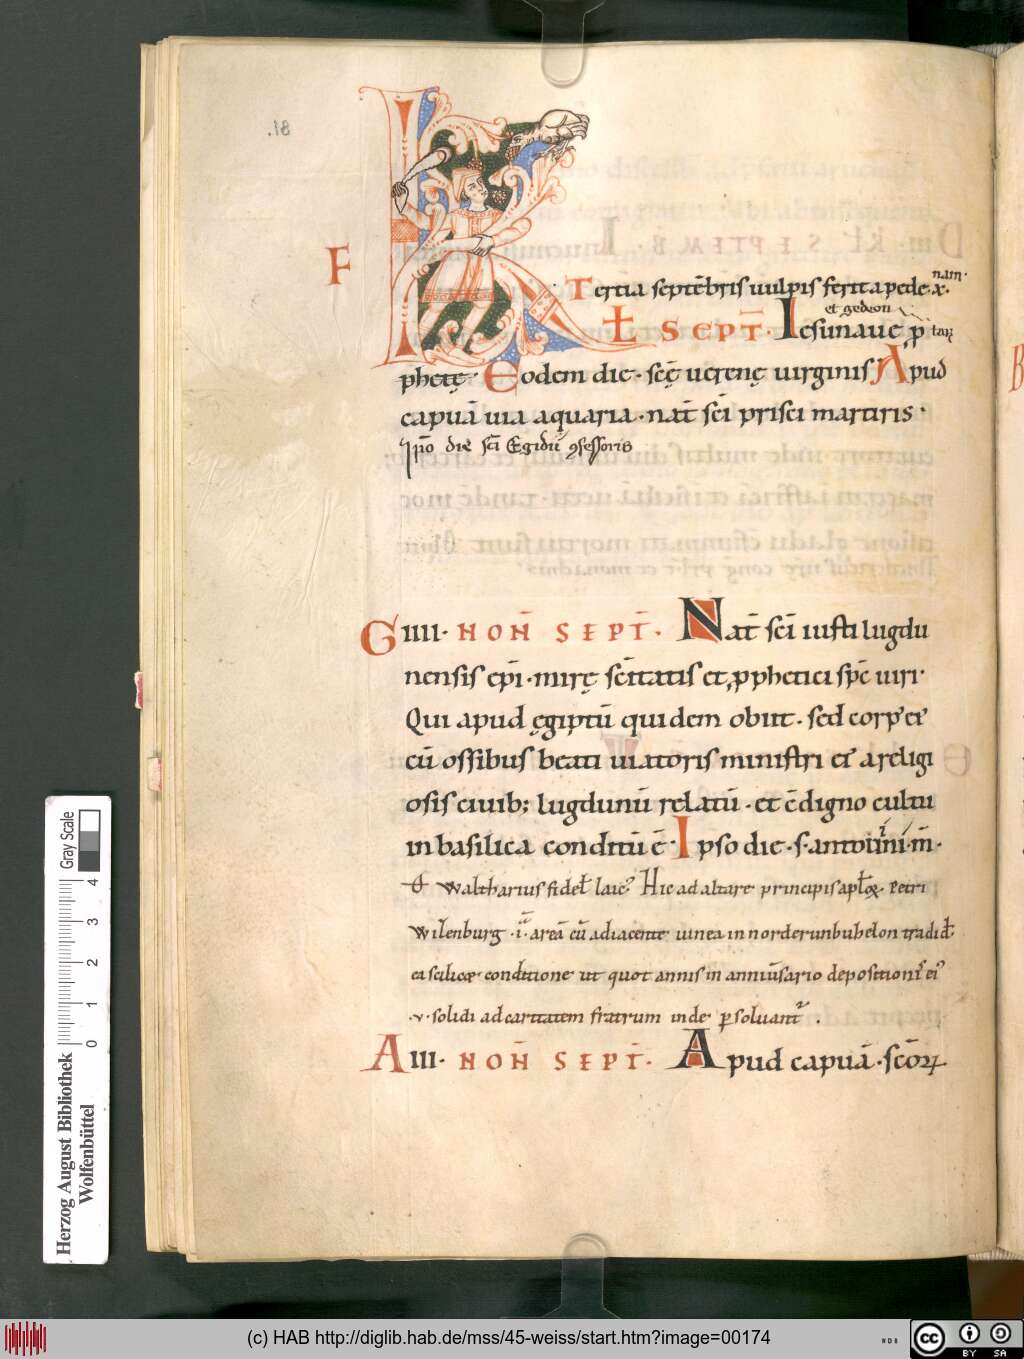 .81
F
K
nam·
Tertia septēbris uulpis ferit a pede·x·
et gedeon
Ł SEPT̄· Iesu naue, p̱ tarꝝ
phetę· Eodem die·sc̄ę uerenę uirginis Apud
capuā uia aquaria·nat̄ sc̄i prisci martiris·
Ip̄o die sc̄i Egidii ꝯfessoris
G IIII· NON̄ SEPT̄· Nat̄ sc̄i iusti lugdu
nensis ep̄i·mirę sc̄itatis et ꝓphetici sp̄c uiri·
Qui apud ęgiptū quidem obiit·sed corp' ei'
cū ossibus beati uiatoris ministri ei' a religi
osis ciuib; lugdunū relatū·et c̄digno cultu
in basilica conditū ē· Ipso die·s·antonini·m̄·
Waltharius fidel̄ laic'. Hic ad altare principis apl̄oꝝ Petri
Wiʒenburg ·i· areā cū adiacente uinea in norderunbubelon tradid̄
ea scilicet conditione ut quot annis in anniū̄sario depositionis ei'
·v·solidi ad caritatem fratrum inde ꝑsoluant̄ .
A III· NON̄ SEPT̄· Apud capuā·sc̄oꝝ
Herzog August Bibliothek
Wolfenbüttel
0 1 2 3 4
Gray Scale
(c) HAB http://diglib.hab.de/mss/45-weiss/start.htm?image=00174
cc BY SA